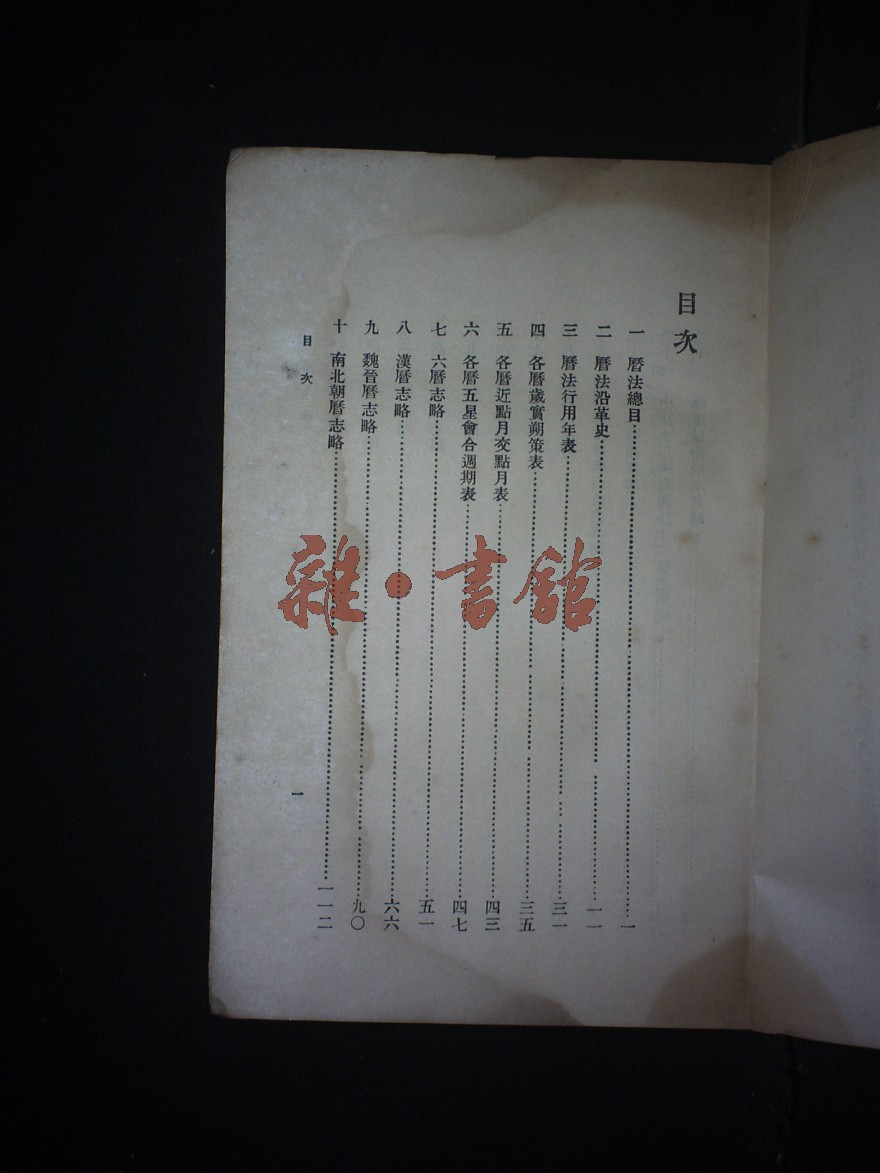 目次
一 曆法總目……一
二 曆法沿革史……一一
三 曆法行用年表……三一
四 各曆歲實朔策表……三五
五 各曆近點月交點月表……四三
六 各曆五星會合週期表……四七
七 六曆志略……五一
八 漢曆志略……六六
九 魏晉曆志略……九〇
十 南北朝曆志略……一一二
目次
一
雜·書館